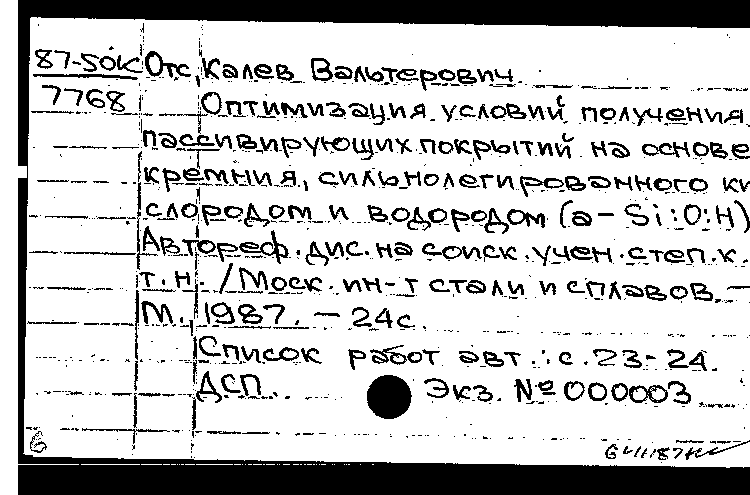 87-50К Отс, Калев Вальтерович.
7768 Оптимизация условий получения
пассивирующих покрытий на основе
кремния, сильнолегированного ки
слородом и водородом (a-Si:O:H)
Автореф. дис. на соиск. учен. степ. к.
т.н. /Моск. ин-т стали и сплавов. —
М., 1987. — 24с.
Список работ авт.: с. 23-24.
ДСП. Экз. № 000003